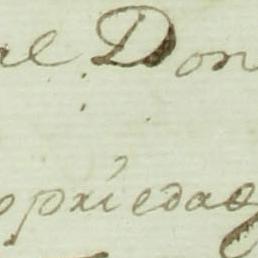 al Don
opriedad